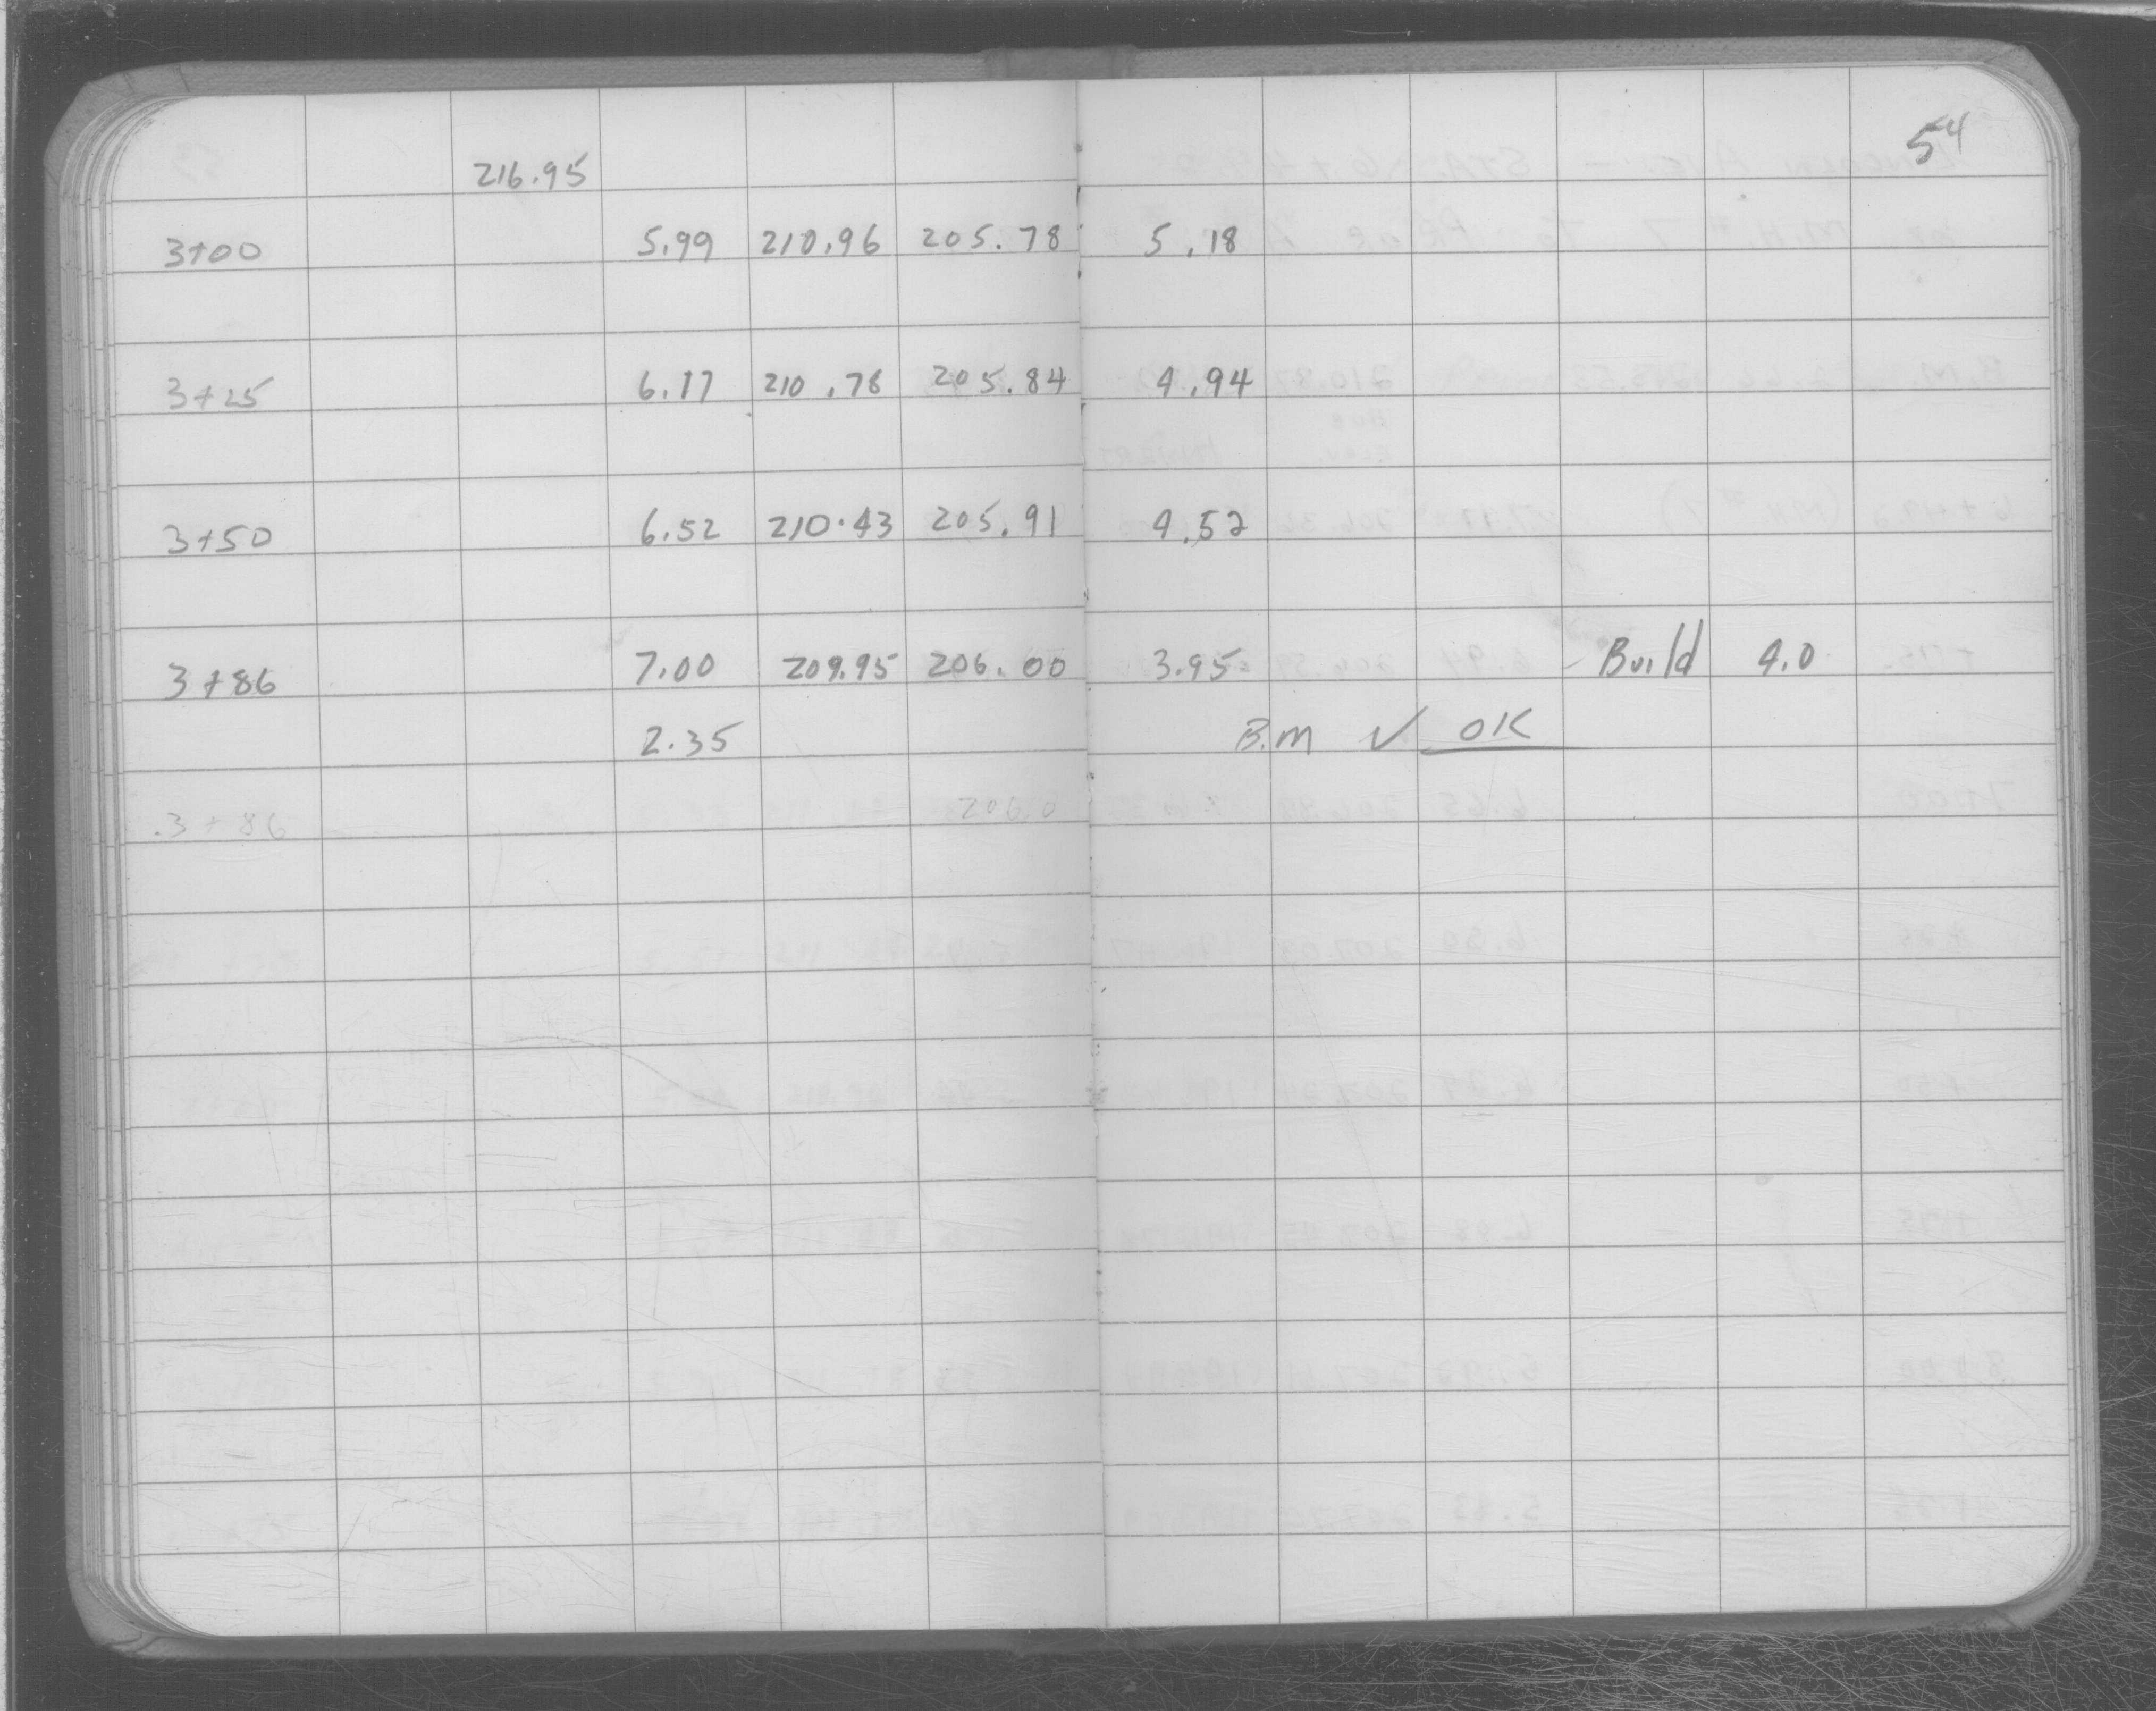 54
216.95
3+00 5.99 210.96 205.78 5.18
3+25 6.17 210.78 205.84 4.94
3+50 6.52 210.43 205.91 4.52
3+86 7.00 209.95 206.00 3.95 Build 4.0
2.35 B.M ✓ OK
3+86 206.0